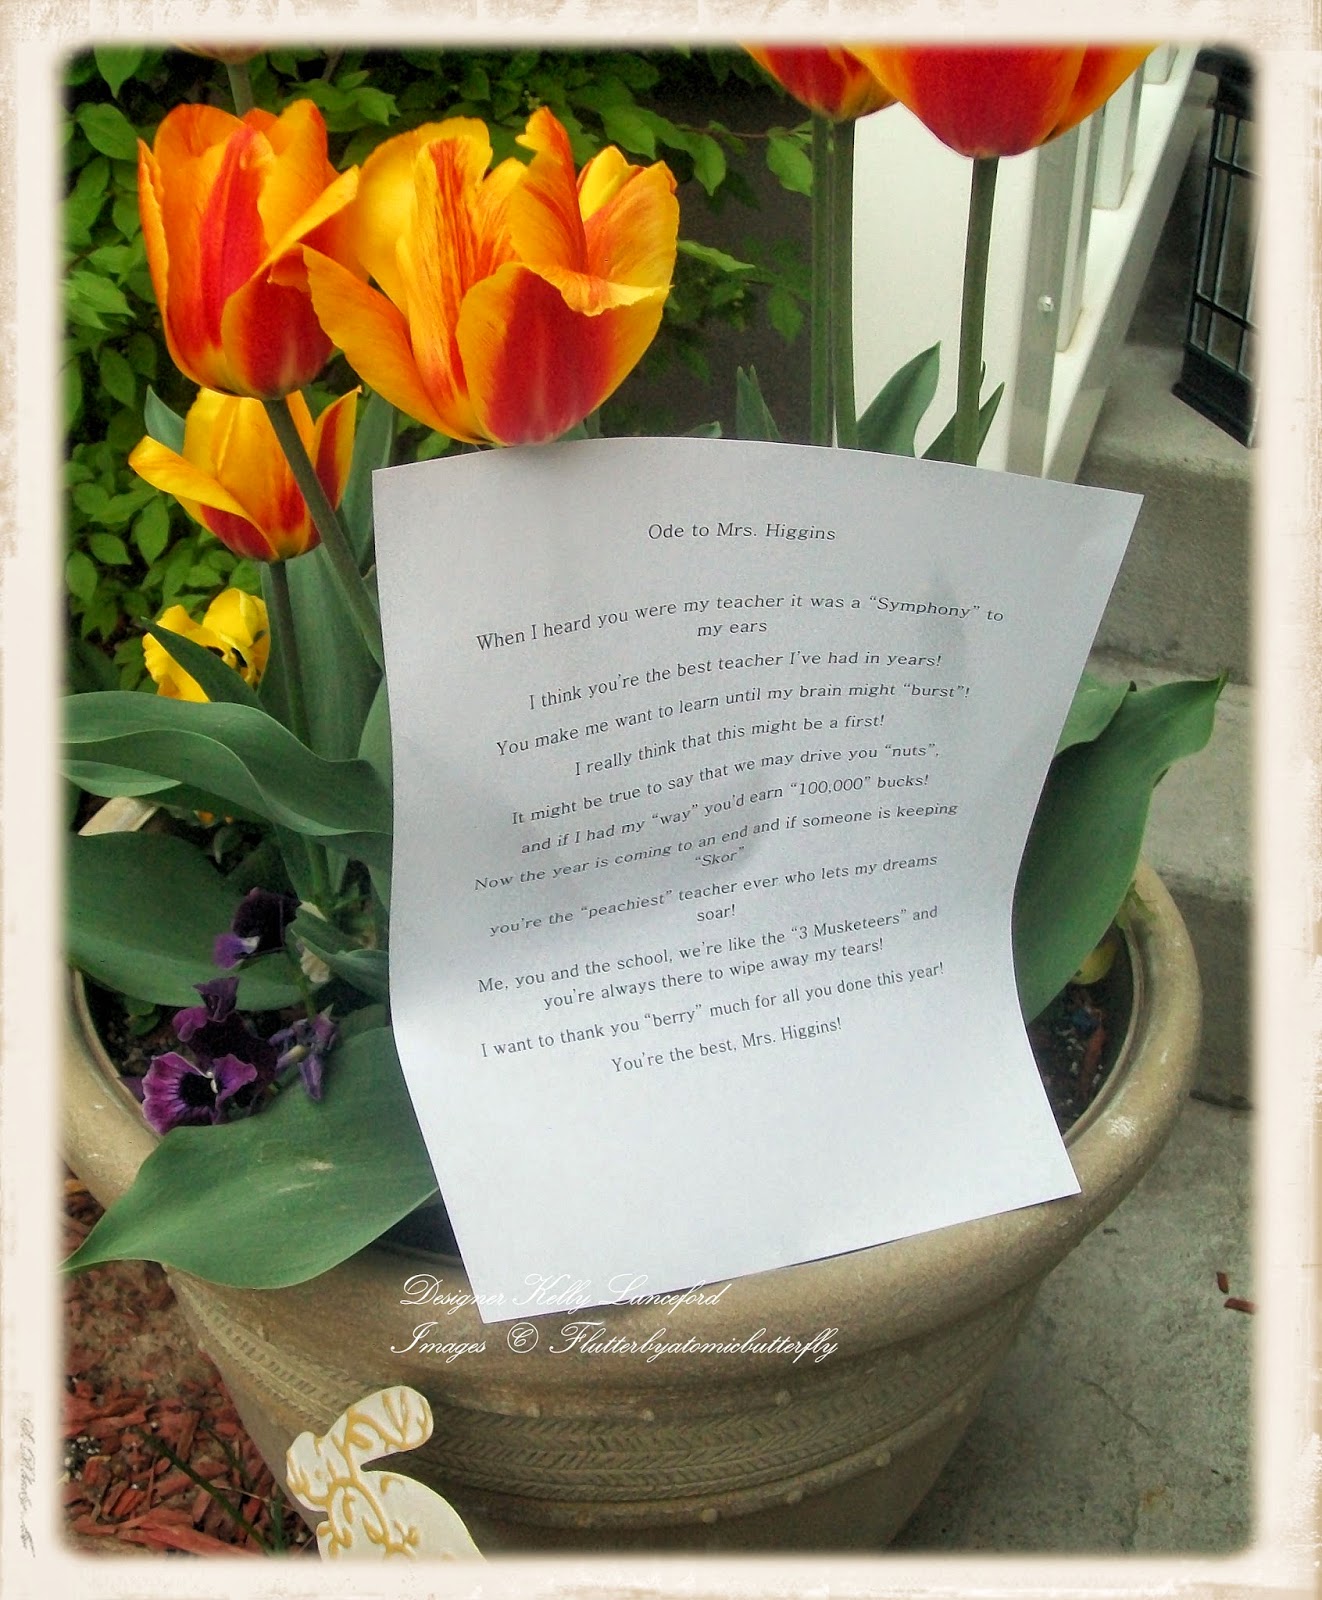 Ode to Mrs. Higgins
When I heard you were my teacher it was a “Symphony” to
my ears
I think you're the best teacher I've had in years!
You make me want to learn until my brain might “burst”!
I really think that this might be a first!
It might be true to say that we may drive you “nuts”,
and if I had my “way” you'd earn “100,000” bucks!
Now the year is coming to an end and if someone is keeping
“Skor”
you're the “peachiest” teacher ever who lets my dreams
soar!
Me, you and the school, we're like the “3 Musketeers” and
you're always there to wipe away my tears!
I want to thank you “berry” much for all you done this year!
You're the best, Mrs. Higgins!
Designer Kelly Lanceford
Images © Flutterbyatomicbutterfly